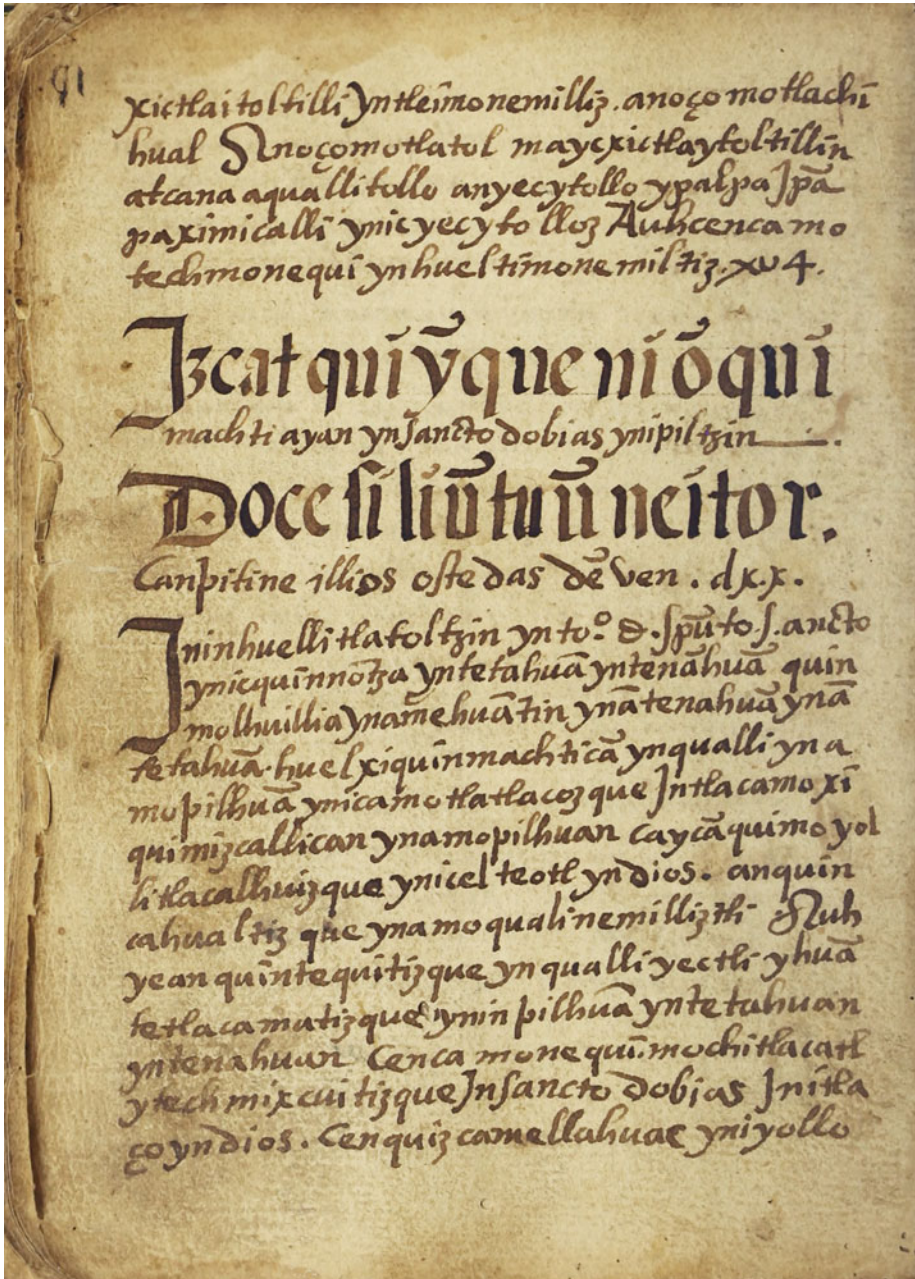 91
xictlaitoltilli yntleīmonemilliz. anoço motlachi
hual Anoçomotlatol maycxictlaytoltillin
atcana aquallitollo anyecytollo ypalpa Jpā
paximicalli ynic yecyto lloz Auhcenca mo
techmonequi ynhueltimonemiltiz. xv 4.
Jzcat quī ȳque ni ōquī
machti ayan ynſancto dobias ynipiltzin
Doce fi liū tuū neitor.
Canpitine illios oſte das dē ven . d x. x.
Jninhuellitlatoltzin yn to.º d. ſpū to ſ. ancto
ynicquinnōtza yntetahuā yntenāhuā quin
molhuillia ynamehuātin ynātenahuā ynā
tetahuā. huel xiquinmachticā ynqualli yn a
mopilhuā ynicamotlatlacozque Jntlacamo xi
quimizcallican ynamopilhuan caycāquimo yol
litlacalhuizque ynicel teotl yn dios. anquin
cahualtiz que ynamoqualinemilliztli Auh
yean quintequitizque yn qualli yectli yhuā
tetlacamatizque ynin pilhuā yntetahuan
yntenahuan Cenca monequi.mochitlacatl
ytech mixcuitizque Jnſancto dobias Jnitla
ço yn dios. Cenquizcamellahuac yniyollo